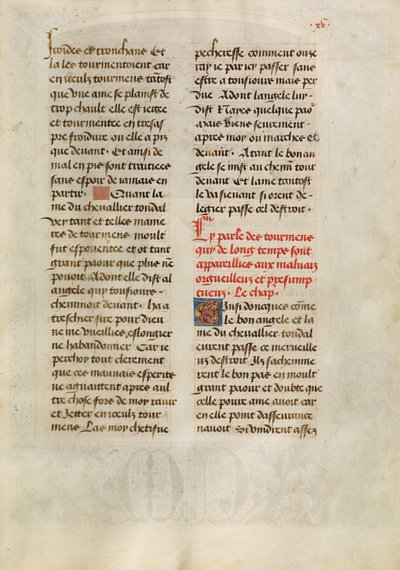 .xv.
froides et tronchans Et
la les tourmentoient car
en iceulx tourmens tantost
que vne ame se plainst de
trop chault elle est iettee
et tourmentee en tresas
pre froidure ou elle a pis
que deuant . Et ainsi de
mal en pis sont traittiees
sans espoir de iamais en
partir . Quant la
me du cheuallier tondal
vey tant et telles manie
res de tourmens moult
fut espouentee et ot tant
grant paour que plus ne
pouoit Adont elle dist al
angele quy tousiours
cheminoit deuant . ha a
treschier sire pour dieu
ne me vueillies eslongier
ne habandonner Car ie
perchoy tout clerement
que ces mauuais esperits
ne aguaittent apres aul
tre chose fors de moy rauir
et Jetter en iceulx tour
mens Las moy chetifue
pecheresse comment oze
ray ie par icy passer sans
estre a tousiours mais per
due Adont langele luy
dist N ayes quelque paour
mais viens seurement
apres moy ou marches
deuant . Atant le bon an
gele se mist au chemin tout
deuant Et lame tantost
le va sieuant si orent de
legier passe cel destroit .
Cy parle des tourmens
quy de long temps sont
appareillies aux mauuaiz
orgueilleux et presump
tueux . Le chap .
Ainsi doncques come
le bon angele et la
me du cheuallier tondal
eurent passe ce merueille
ux destroit Ilz sachemine
rent le bon pas en moult
grant paour et doubte que
celle poure ame auoit car
en elle point dasseurance
nauoit Si vindrent asses